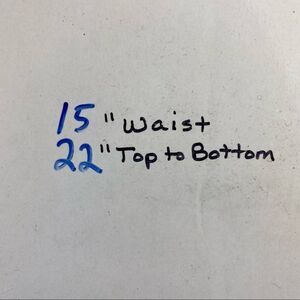 15" Waist
22" Top to Bottom